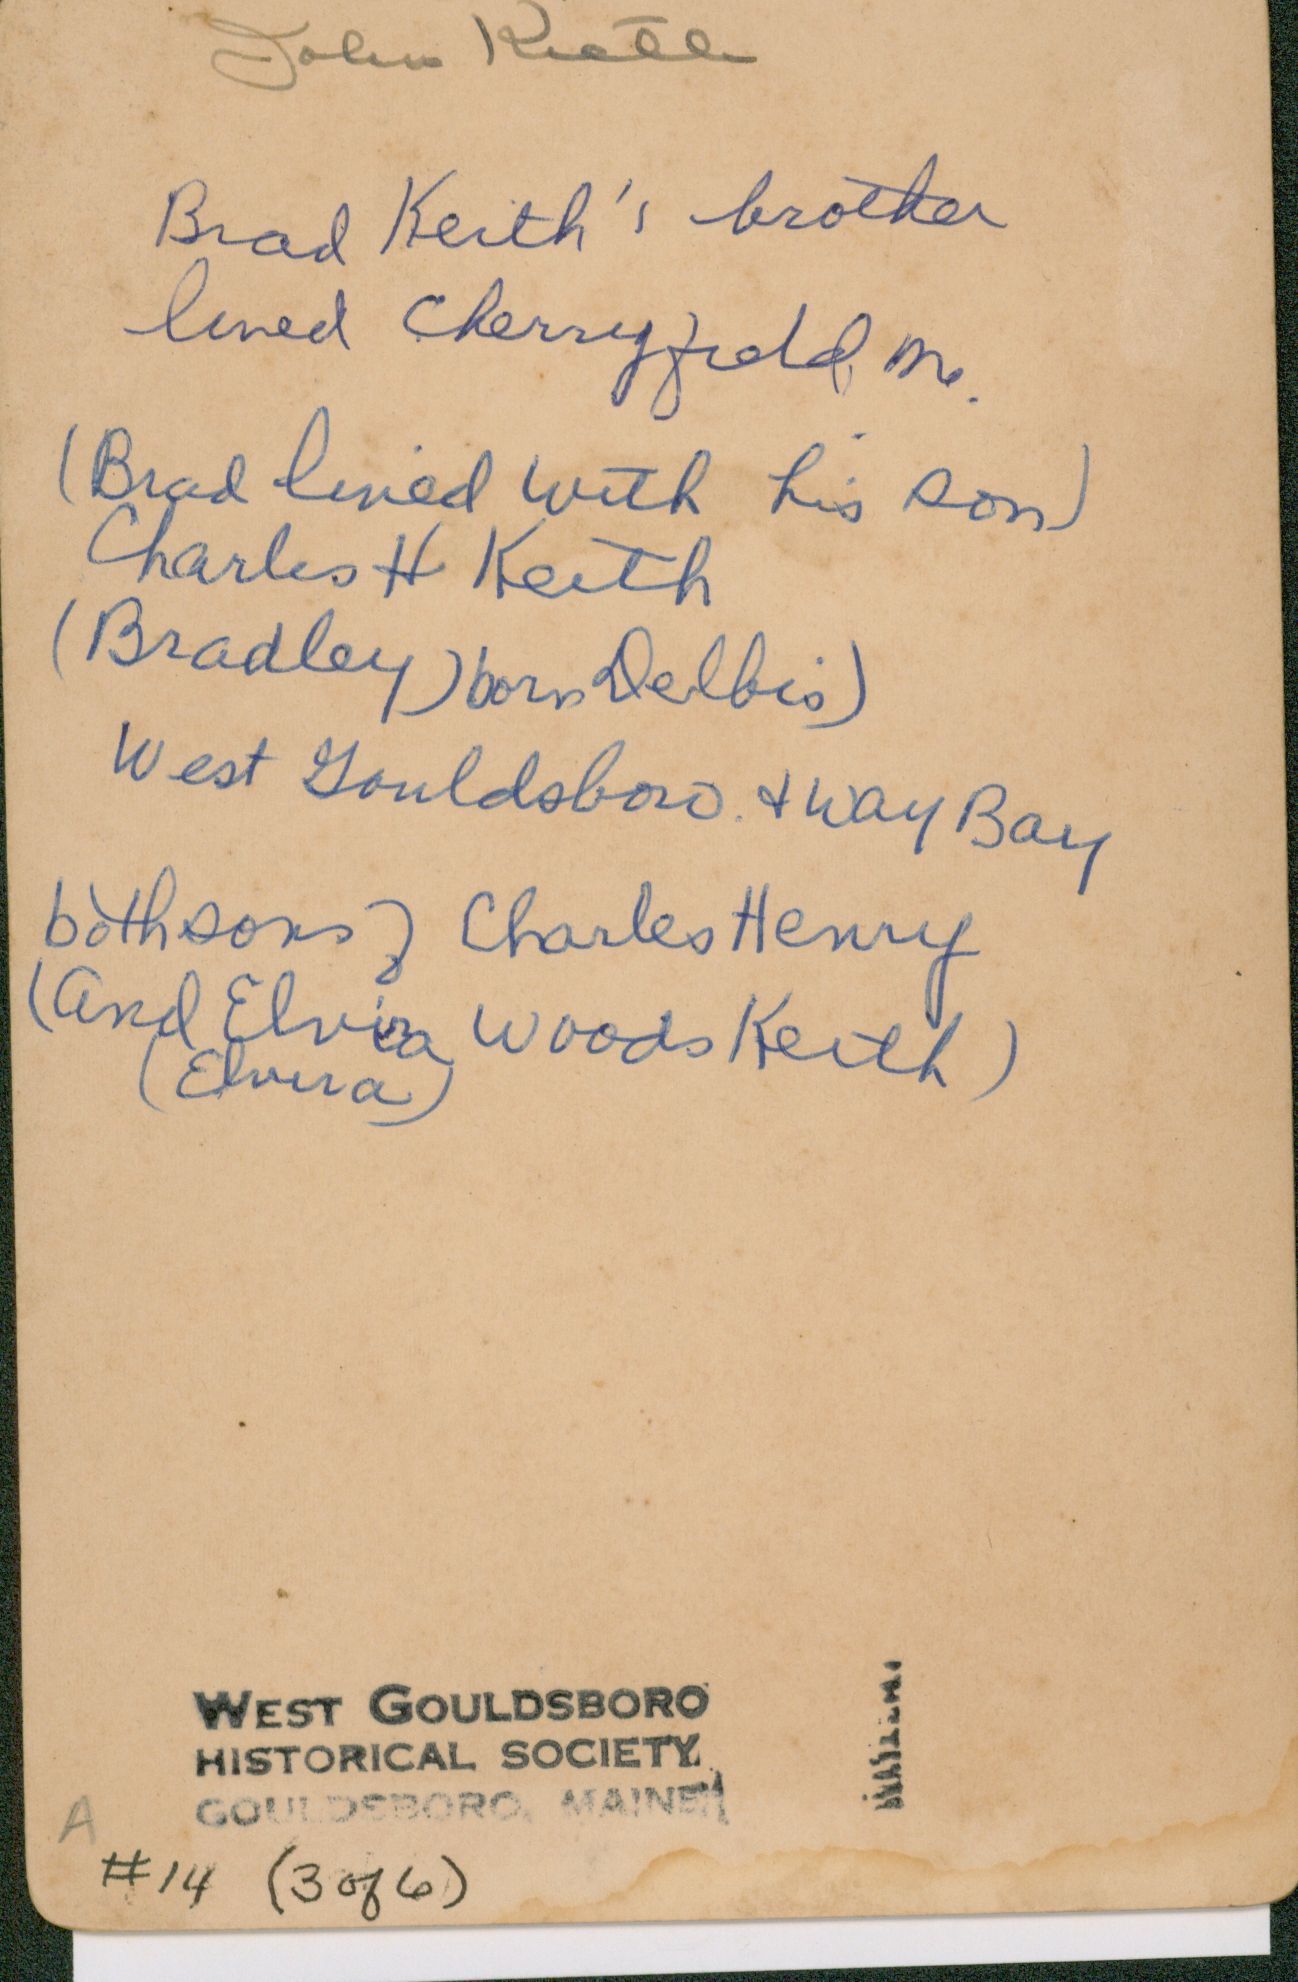 John Keith
Brad Keith's brother
lived Cherryfield, Me.
(Brad lived with his son)
Charles H Keith
(Bradley) born Delbis)
West Gouldsboro. + Way Bay
both sons of Charles Henry
(And Elvira Woods Keith)
(Elvira)
WEST GOULDSBORO
HISTORICAL SOCIETY
GOULDSBORO, MAINE
A
#14 (3 of 6)